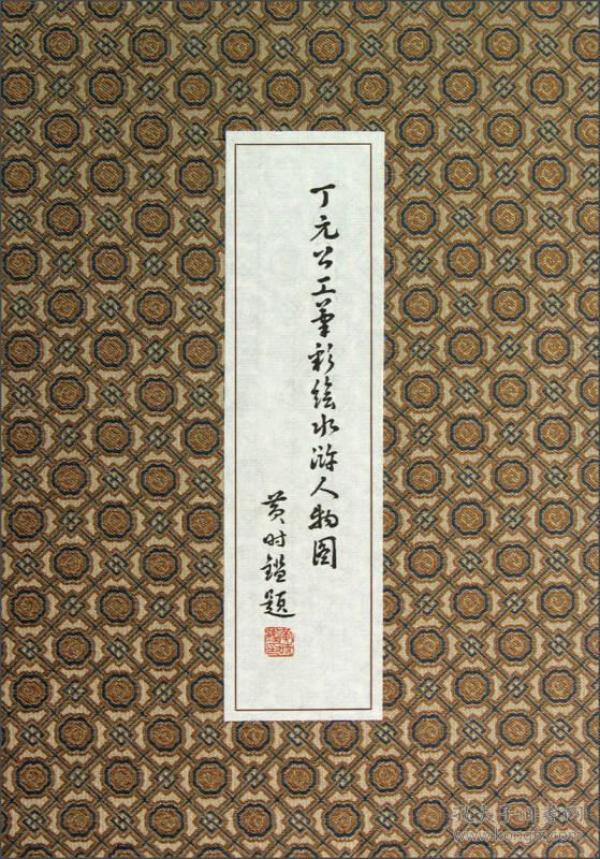 丁元公工笔彩绘水浒人物图
黄时鑑题
孔夫子旧书网
www.kongfz.com